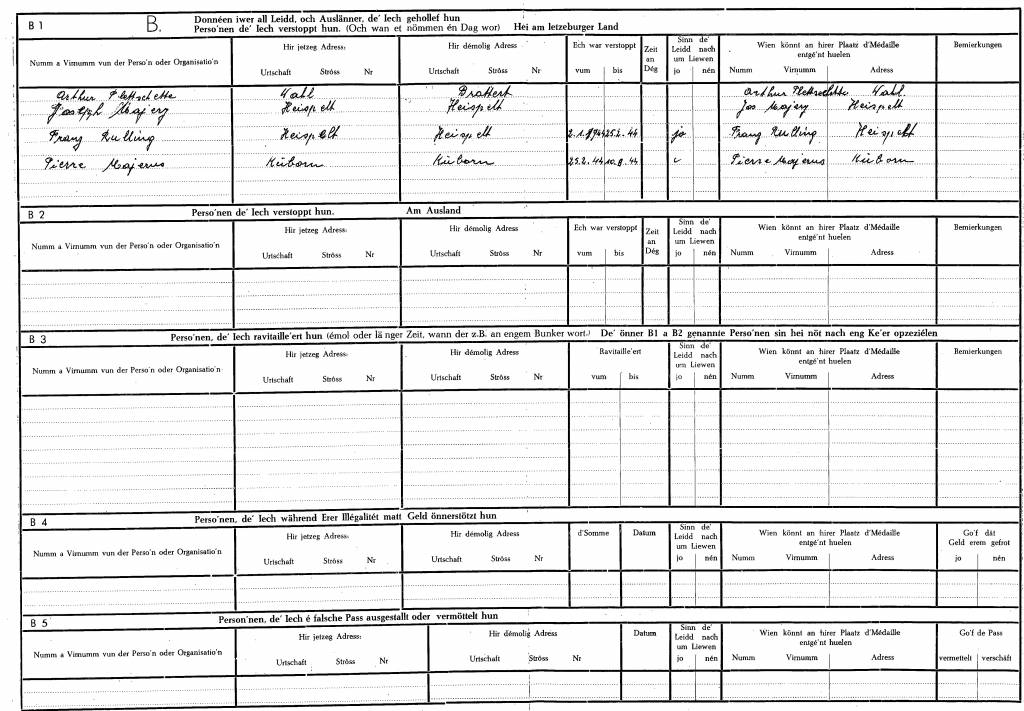 B 1 B. Donnéen iwer all Leidd, och Auslänner, de' Iech gehollef hun
Perso'nen de' Iech verstoppt hun. (Och wan et nömmen én Dag wor) Hei am letzeburger Land
Numm a Virnumm vun der Perso'n oder Organisatio'n Hir jetzeg Adress: Hir démolig Adress Ech war verstoppt Zeit an Dég Sinn de' Leidd nach um Liewen Wien könnt an hirer Plaatz d'Médaille entgé'nt huelen Bemierkungen
Urtschaft Ströss Nr Urtschaft Ströss Nr vum bis jo nén Numm Virnumm Adress
Arthur Plettschette Wahl Brattert Arthur Wahl.
Joseph Majery Heispelt Heispelt Jos Majery Heispelt
Franz Rulling Heispelt Heispelt 2.1.1944 25.2.44 jo Franz Rulling Heispelt
Pierre Majerus Küborn Küborn 25.2.44 10.9.44 Pierre Majerus Küborn
B 2 Perso'nen de' Iech verstoppt hun. Am Ausland
Numm a Virnumm vun der Perso'n oder Organisatio'n Hir jetzeg Adress: Hir démolig Adress Ech war verstoppt Zeit an Dég Sinn de' Leidd nach um Liewen Wien könnt an hirer Plaatz d'Médaille entgé'nt huelen Bemierkungen
Urtschaft Ströss Nr Urtschaft Ströss Nr vum bis jo nén Numm Virnumm Adress
B 3 Perso'nen, de' Iech ravitaille'ert hun (émol oder länger Zeit, wann der z.B. an engem Bunker wort.) De' önner B1 a B2 genannte Perso'nen sin hei nöt nach eng Ke'er opzeziélen
Numm a Virnumm vun der Perso'n oder Organisatio'n Hir jetzeg Adress: Hir démolig Adress Ravitaille'ert Sinn de' Leidd nach um Liewen Wien könnt an hirer Plaatz d'Médaille entgé'nt huelen Bemierkungen
Urtschaft Ströss Nr Urtschaft Ströss Nr vum bis jo nén Numm Virnumm Adress
B 4 Perso'nen, de' Iech während Erer Illégalitét matt Geld önnerstötzt hun
Numm a Virnumm vun der Perso'n oder Organisatio'n Hir jetzeg Adress: Hir démolig Adress d'Somme Datum Sinn de' Leidd nach um Liewen Wien könnt an hirer Plaatz d'Médaille entgé'nt huelen Go'f dât Geld erem gefrot
Urtschaft Ströss Nr Urtschaft Ströss Nr jo nén Numm Virnumm Adress jo nén
B 5 Person'nen, de' Iech é falsche Pass ausgestallt oder vermöttelt hun
Numm a Virnumm vun der Perso'n oder Organisatio'n Hir jetzeg Adress: Hir démolig Adress Datum Sinn de' Leidd nach um Liewen Wien könnt an hirer Plaatz d'Médaille entgé'nt huelen Go'f de Pass
Urtschaft Ströss Nr Urtschaft Ströss Nr jo nén Numm Virnumm Adress vermettelt verschâft